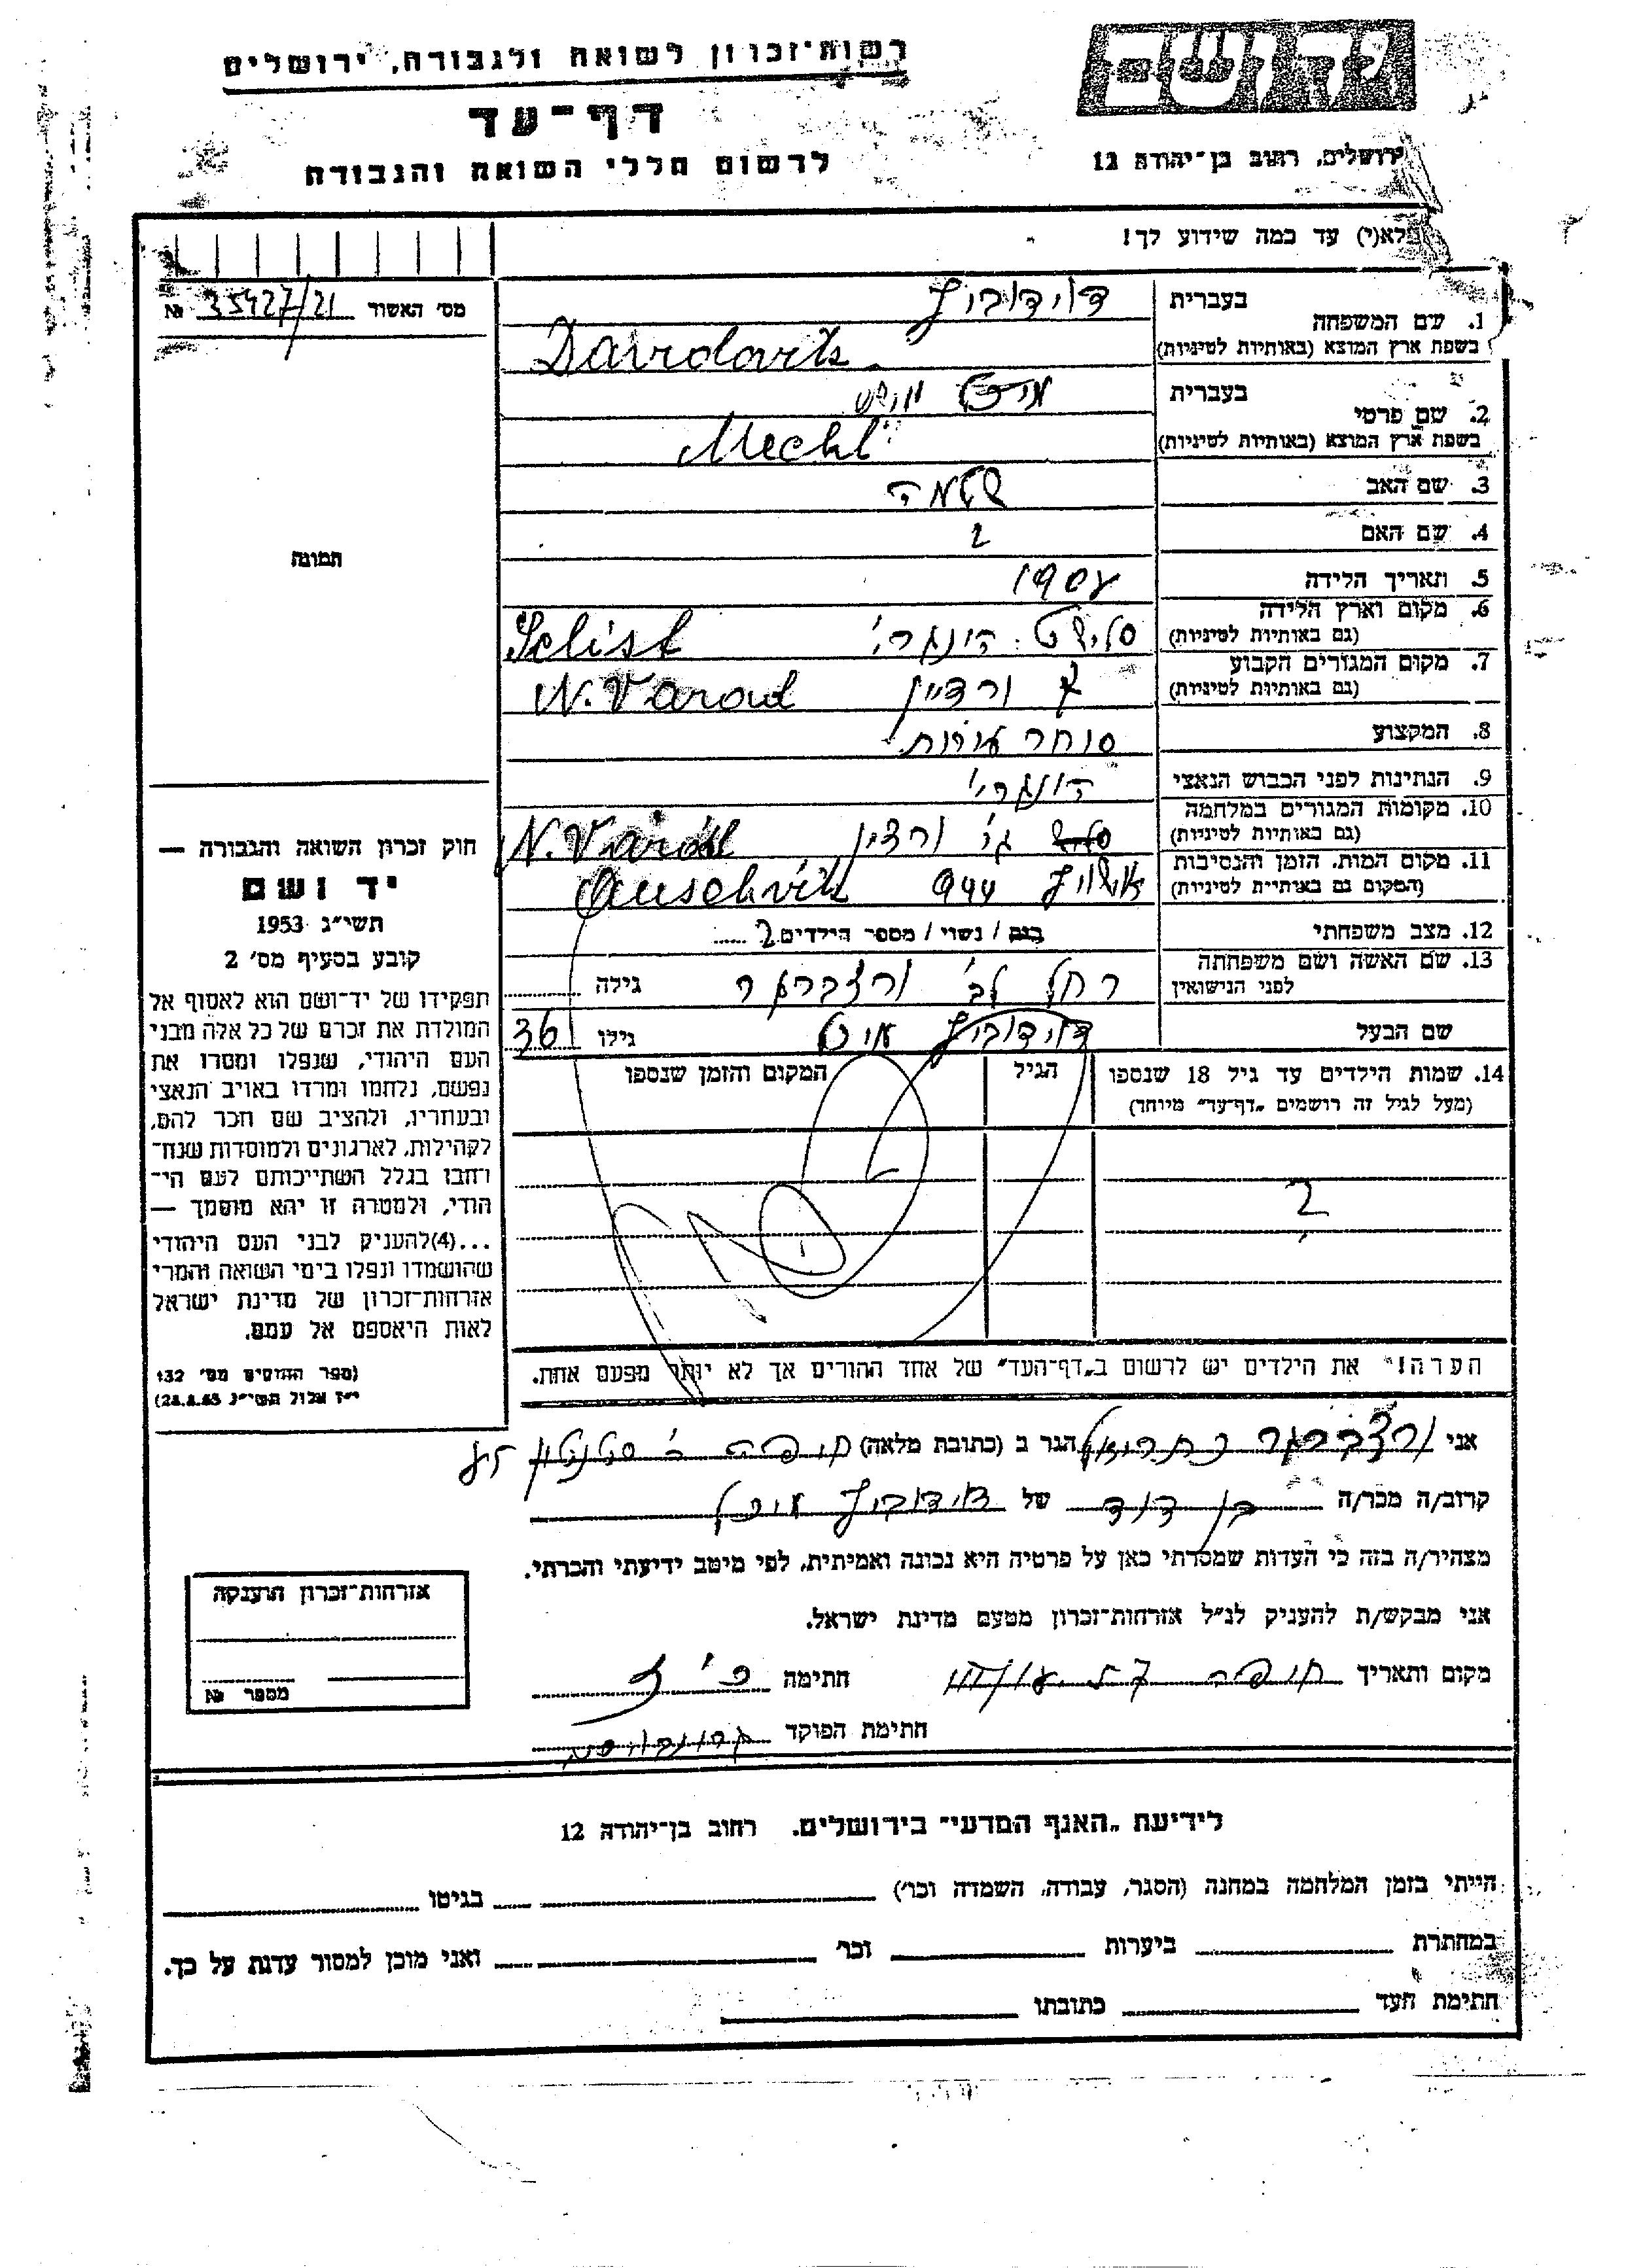 רשות־זכרון לשואה ולגבורה, ירושלים
יד ושם
דף־עד
לרשום חללי השואה והגבורה
ירושלים, רחוב בן־יהודה 12
מלא(י) עד כמה שידוע לך!
מס' האשור 35427/21 №
1. שם המשפחה
בעברית דוידוביץ
בשפת ארץ המוצא (באותיות לטיניות) Davidovits
2. שם פרטי
בעברית
בשפת ארץ המוצא (באותיות לטיניות) Mechl
3. שם האב שלמה
4. שם האם ?
5. תאריך הלידה
6. מקום וארץ הלידה
(גם באותיות לטיניות) הונגרי' Selist
7. מקום המגורים הקבוע
(גם באותיות לטיניות) ג ורדיין N. Varad
8. המקצוע סוחר עורות
9. הנתינות לפני הכבוש הנאצי הונגרי'
10. מקומות המגורים במלחמה
(גם באותיות לטיניות) גר' ורדיין N. Várad
11. מקום המות, הזמן והנסיבות
(המקום גם באותיות לטיניות) אושוויץ 944 Auschvits
12. מצב משפחתי רווק / נשוי / מספר הילדים 2
13. שם האשה ושם משפחתה
לפני הנישואין רחל לב' ורצברגר גילה
שם הבעל דוידוביץ גילו 36
14. שמות הילדים עד גיל 18 שנספו
(מעל לגיל זה רושמים "דף־עד" מיוחד)
הגיל
המקום והזמן שנספו
?
הערה! את הילדים יש לרשום ב"דף־העד" של אחד ההורים אך לא יותר מפעם אחת.
תמונה
חוק זכרון השואה והגבורה —
יד ושם
תשי"ג 1953
קובע בסעיף מס' 2
תפקידו של יד־ושם הוא לאסוף אל
המולדת את זכרם של כל אלה מבני
העם היהודי, שנפלו ומסרו את
נפשם, נלחמו ומרדו באויב הנאצי
ובעוזריו, ולהציב שם וזכר להם,
לקהילות, לארגונים ולמוסדות שנח־
רבו בגלל השתייכותם לעם הי־
הודי, ולמטרה זו יהא מוסמך —
...(4) להעניק לבני העם היהודי
שהושמדו ונפלו בימי השואה והמרי
אזרחות־זכרון של מדינת ישראל
לאות היאספם אל עמם.
(ספר החוקים מס' 132
י"ז אלול תשי"ג 28.8.53)
אני ורצברגר הגר ב (כתובת מלאה) חיפה
קרוב/ה מכר/ה בן דוד של דוידוביץ
מצהיר/ה בזה כי העדות שמסרתי כאן על פרטיה היא נכונה ואמיתית, לפי מיטב ידיעתי והכרתי.
אני מבקש/ת להעניק לנ"ל אזרחות־זכרון מטעם מדינת ישראל.
מקום ותאריך חיפה חתימה
חתימת הפוקד
אזרחות־זכרון הוענקה
מספר №
לידיעת "האגף המדעי" בירושלים. רחוב בן־יהודה 12
הייתי בזמן המלחמה במחנה (הסגר, עבודה, השמדה וכו') בגיטו
במחתרת ביערות וכו' ואני מוכן למסור עדות על כך.
חתימת העד כתובתו